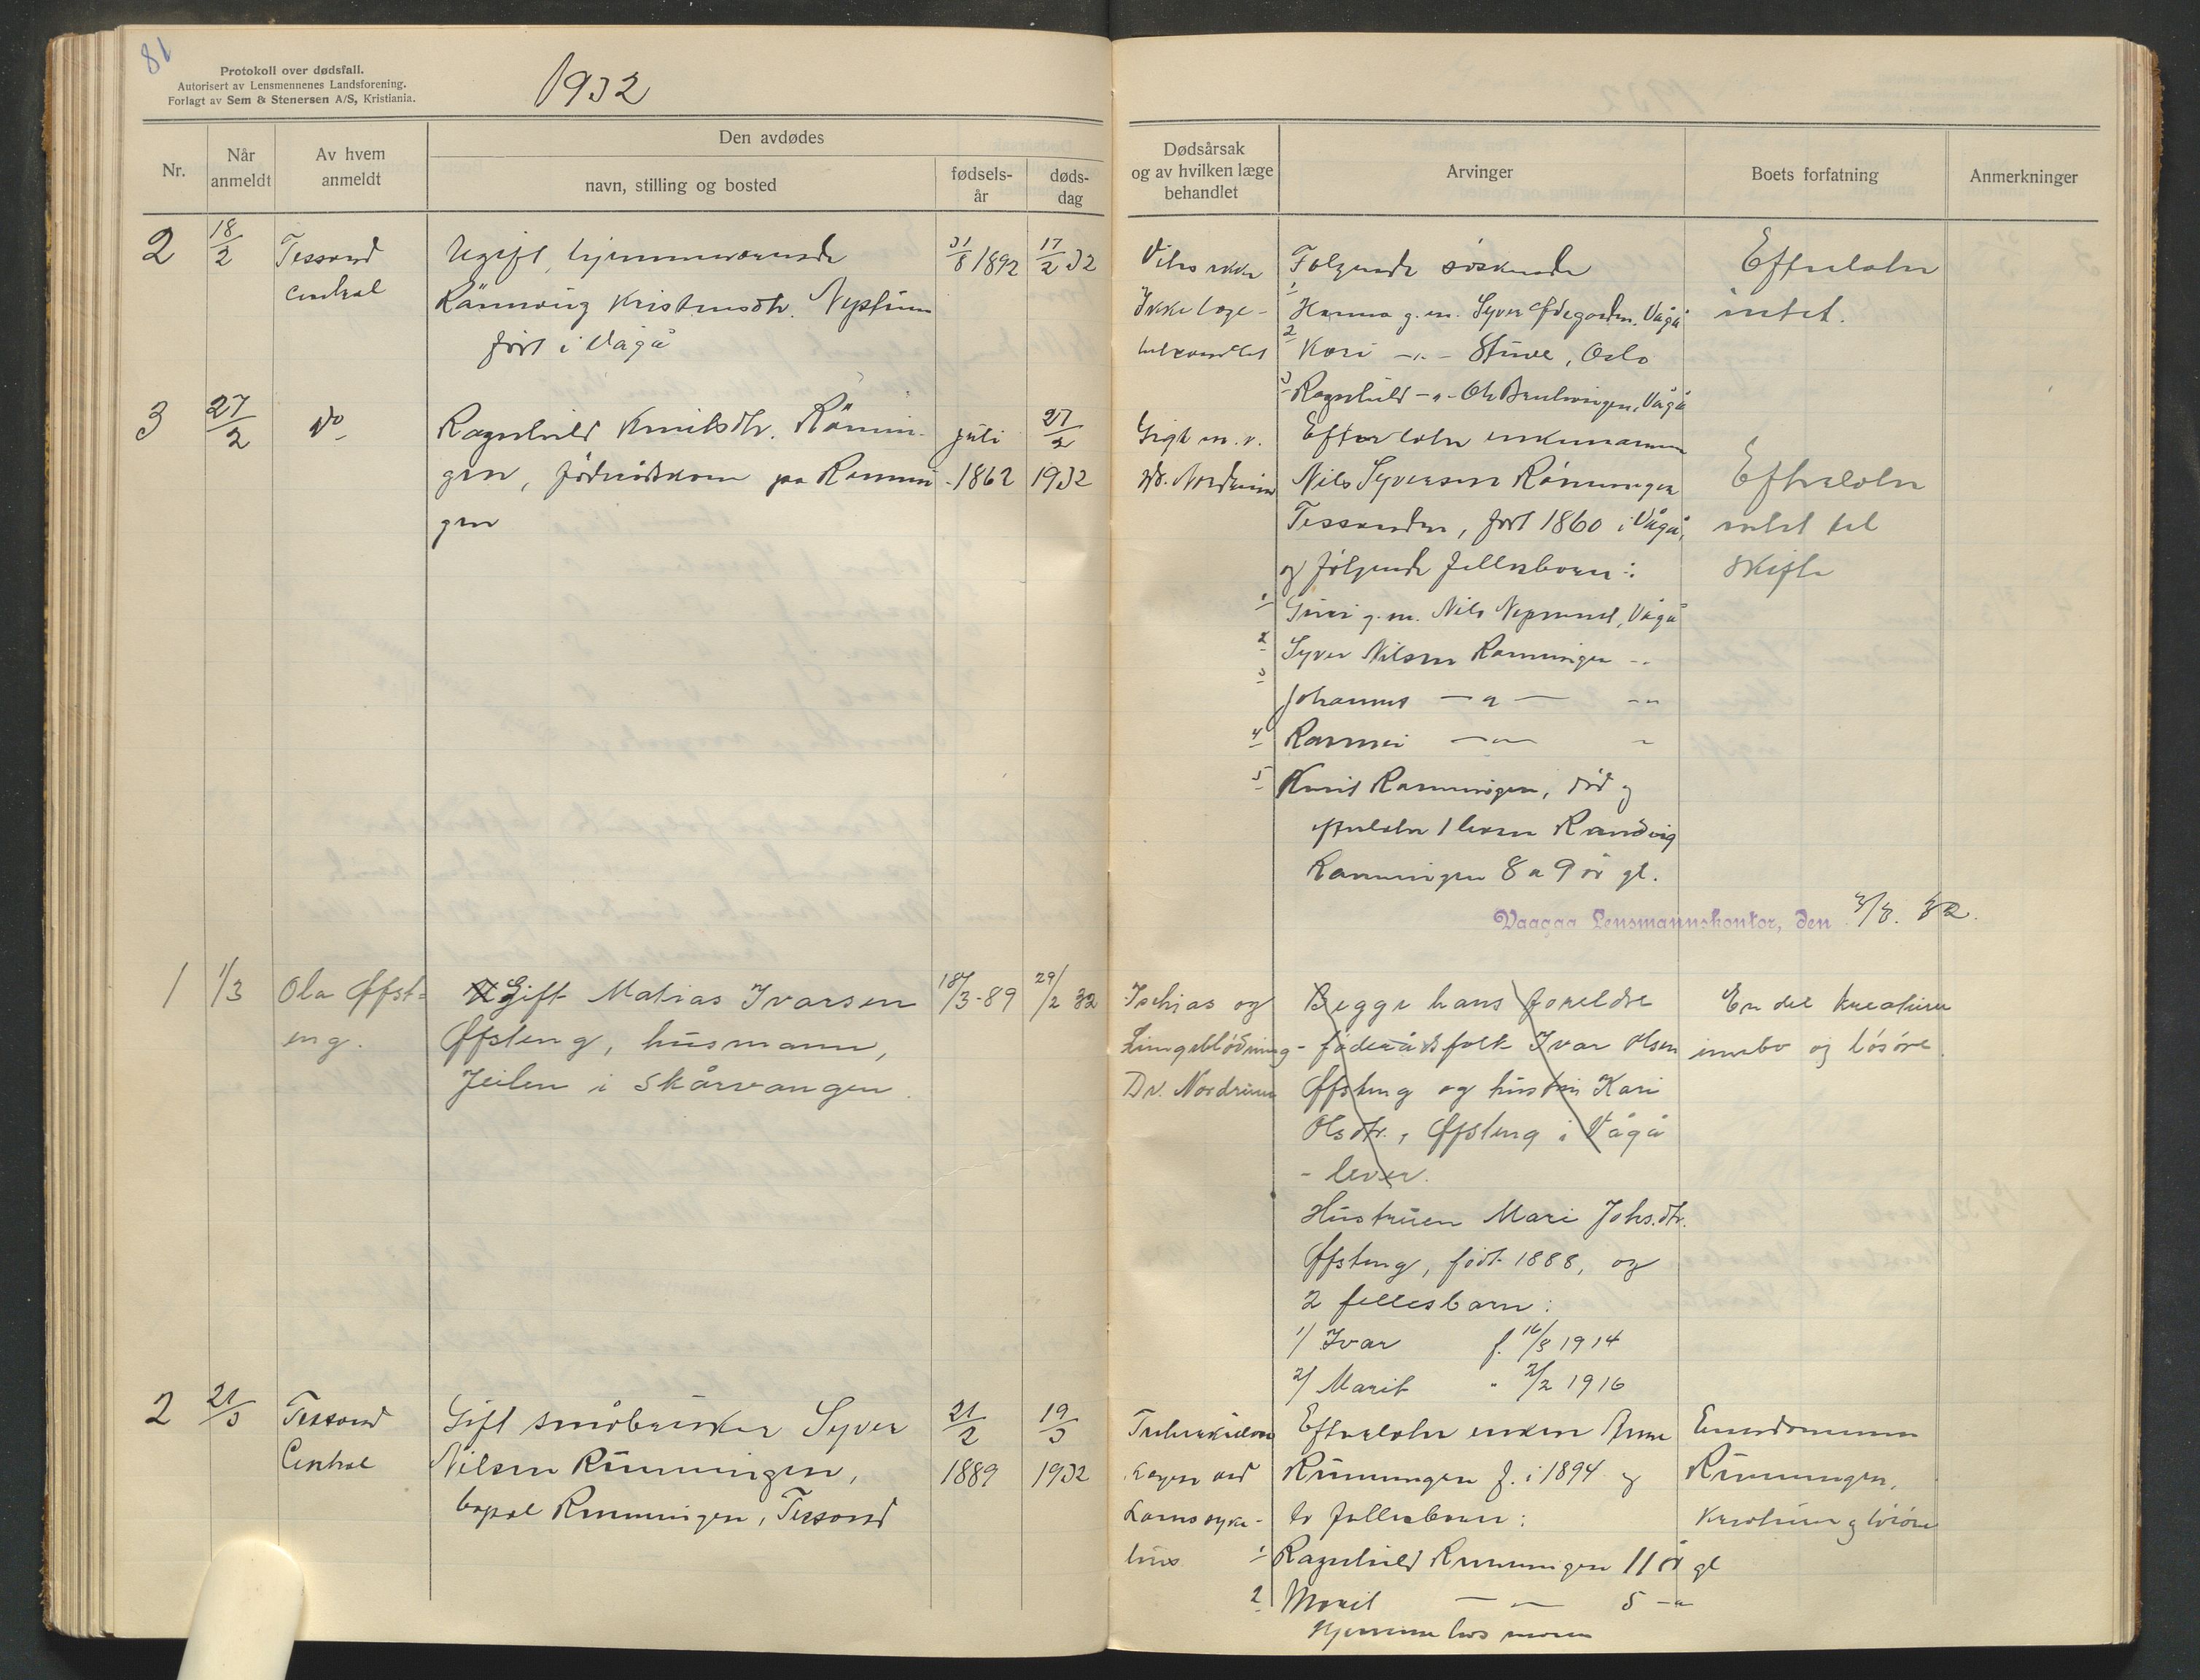 81
Protokoll over dødsfall.
Autorisert av Lensmennenes Landsforening.
Forlagt av Sem & Stenersen A/S, Kristiania.
1932
Nr.
Når anmeldt
Av hvem anmeldt
Den avdødes
navn, stilling og bosted
fødsels-år
døds-dag
Dødsårsak og av hvilken læge behandlet
Arvinger
Boets forfatning
Anmerkninger
2
18/2
Tessand
Central
Ugift, hjemmeværende
Rännveig Kristensdtr.
ført i Vågå
31/8 1892
17/2 32
Vites ikke
Ikke læge-
behandlet
Følgende søskende
1 Hanna g. m. Syver Ødegården, Vågå
2 Kari -"- Stuve, Oslo
3 Ragnhild -"- Ola Vågå
Efterlater
intet.
3
27/2
Do
Ragnhild Knutsdtr. Rønnin-
gen, føderådskone på Rønnin
gen
juli
1862
27/2
1932
Gigt m. v.
Dr. Nordrum
Efterlater enkemannen
Nils Syversen Rønningen
Tessanden, født 1860 i Vågå,
og følgende fellesbarn:
1 Guri g. m. Nils Vågå
2 Syver Nilsen Rønningen -"-
3 Johannes -"- -"-
4 Rønnei -"- "
5 Knut Rønningen, død og
efterlater 1 barn Randvig
Rønningen 8 a 9 år gl.
Efterlater
intet til
skifte
Vaagaa Lensmannskontor, den 3/3. 32.
1
1/3
Ola Øfst=
eng.
Gift Matias Ivarsen
Øfsteng, husmann,
Jeilen i Skårvangen.
18/3-89
29/2 32
Ischias og
Lungeblødning
Dr. Nordrum
Begge hans foreldre
- føderådsfolk Ivar Olsen
Øfsteng og hustru Kari
Olsdtr., Øfsteng i Vågå
- lever.
Hustruen Mari Johs.dtr.
Øfsteng, født 1888, og
2 fellesbarn:
1/ Ivar f. 16/3 1914
2/ Marit " 2/2 1916
En del kreaturer
innbo og løsøre.
2
21/3
Tessand
Central
Gift småbruker Syver
Nilsen Rönningen,
bopæl Rønningen, Tessand
21/2
1889
19/3
1932
Tuberkulose
Lægen ved
Loms syke-
hus
Efterlater enken Anne
Rönningen f. i 1894 og
to fellesbarn:
1 Ragnhild Rønningen 11 år gl
2 Marit -"- 5 -"-
Hjemme hos moren
Eiendommen
Rönningen,
Kreaturer og løsøre